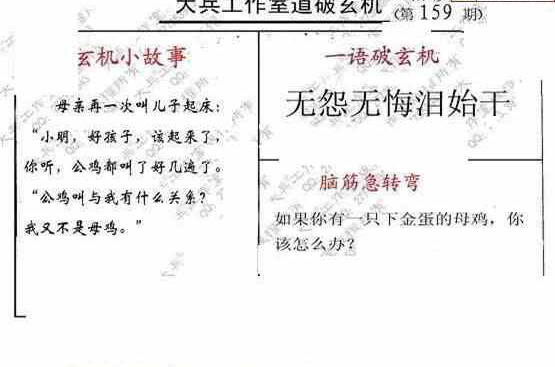 大兵工作室道破玄机 (第 159 期)
玄机小故事
母亲再一次叫儿子起床：
“小明，好孩子，该起来了，
你听，公鸡都叫了好几遍了。
“公鸡叫与我有什么关系？
我又不是母鸡。”
一语破玄机
无怨无悔泪始干
脑筋急转弯
如果你有一只下金蛋的母鸡，你
该怎么办？